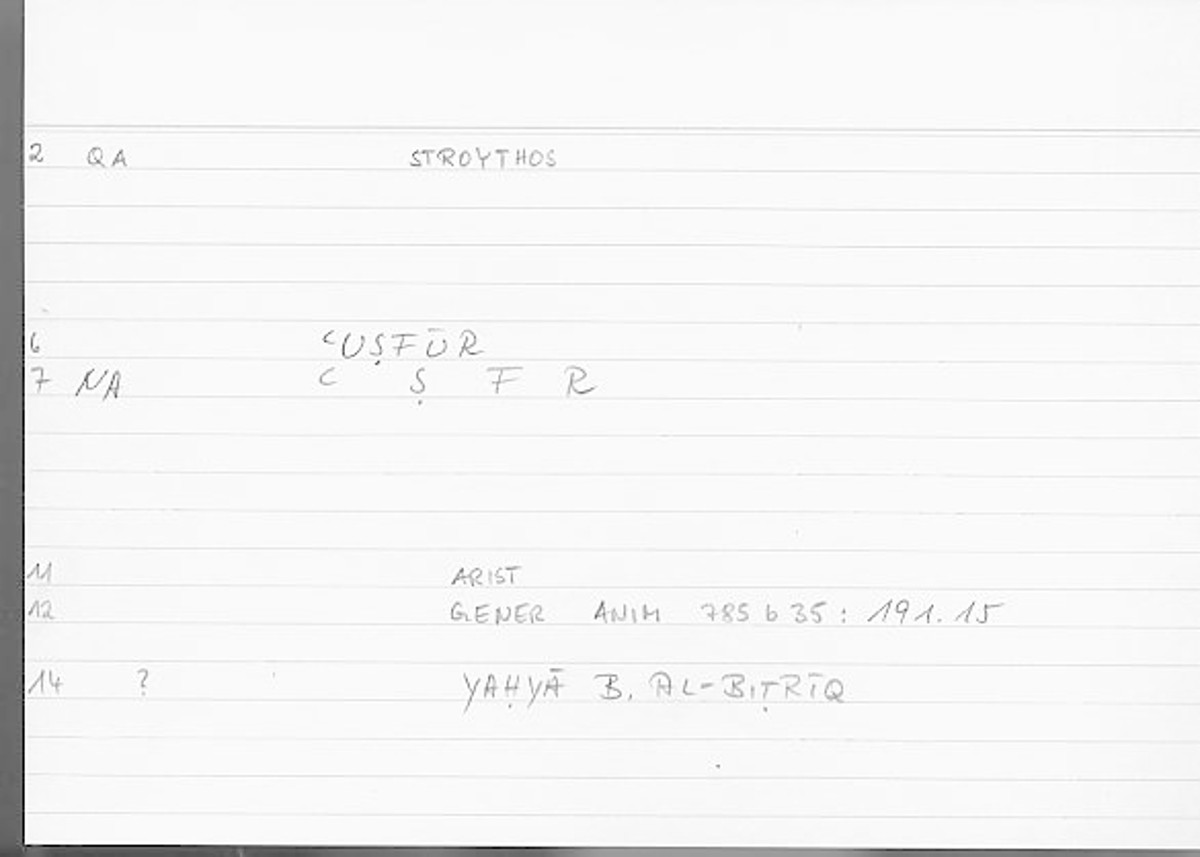 2 QA STROYTHOS
6 ʿUṢFŪR
7 NA ʿ Ṣ F R
11 ARIST
12 GENER ANIM 785 b 35 : 191.15
14 ? YAḤYĀ B. AL-BIṬRĪQ